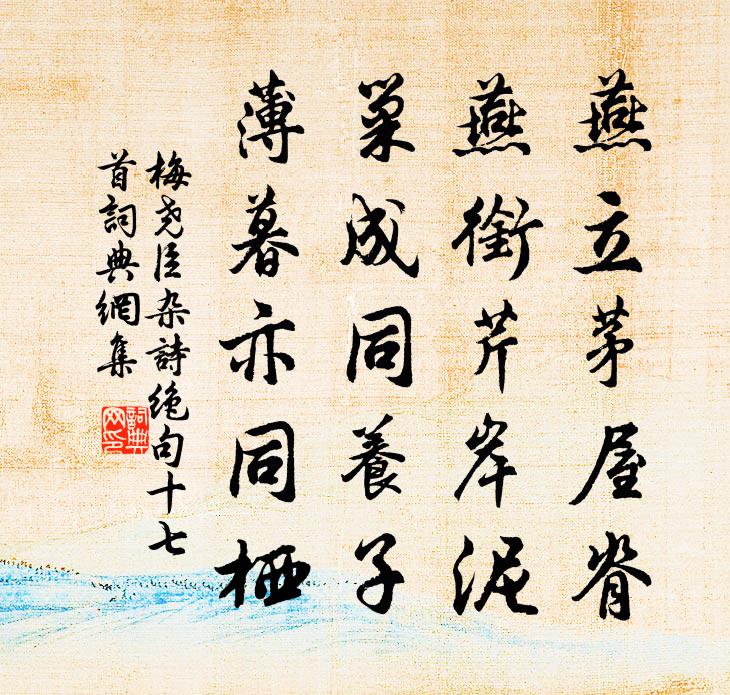 燕立茅屋脊
燕銜芹岸泥
巢成同養子
薄暮亦同栖
梅尧臣杂詩绝句十七
首詞典網集
詞典
网印